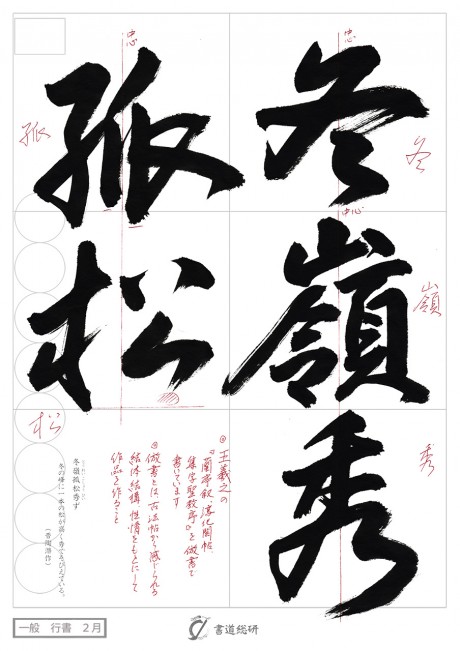 冬嶺秀
孤松
中心
中心
中心
冬
嶺
秀
孤
松
◎王羲之の
『蘭亭叙、淳化閣帖、
集字聖教序』を倣書で
書いています
◎倣書とは古法帖から感じられる
結体、結構、性情をもとにして
作品を作ること
冬嶺孤松秀ず
冬の峰に一本の松が高く秀でそびえている。
一般 行書 2月
書道総研